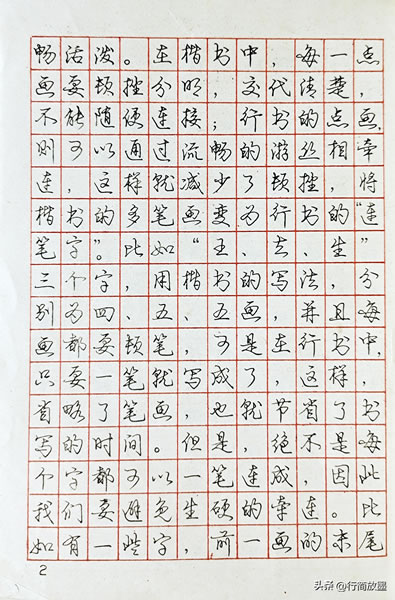 畅活泼。在楷书中，每一点
画要顿挫分明，交代清楚，
不能随便连接；行书的点画，
则可以通过流畅的游丝相牵
连，这样就减少了顿挫，将
楷书的多笔画变为行书的“连
笔字”。比如“王、去、生”
三个字，用楷书的写法，分
别为四、五、五画，并且每
画都要顿笔，可是在行书中，
只要一笔就写成了，这样，
省略了笔画，也就节省了书
写的时间。但是，绝不是每
个字都可以一笔连成，因此
我们要避免生硬的牵连。比
如有一些字，前一画的末尾
2
头条 @行简放墨